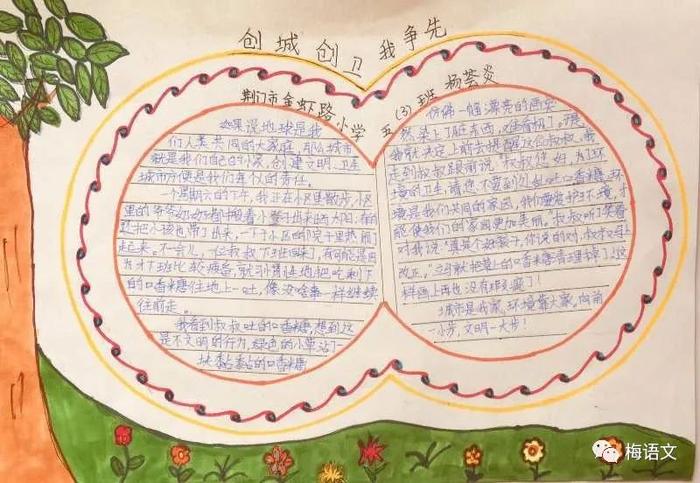 创城创卫 我争先
荆门市金虾路小学 五(3)班 杨荟炎
如果说地球是我
们人类共同的大家庭,那么城市
就是我们自己的小家,创建文明、卫生
城市
一个星期六的下午,我正在小区里散步,小区
里的爷爷奶奶都搬着小凳子出来晒太阳,有的
还把小孩也带了出来,一下子小区的院子里热闹了
起来。不一会儿,一位叔叔下班回来了,有可能是因
为才下班比较疲备,就习惯性地把吃剩下
的口香糖往地上一吐,像没啥事一样继续
往前走。
我看到叔叔吐的口香糖,想到这
是不文明的行为,绿色的小草沾了一
块黏黏的口香糖
仿佛一幅漂亮的画突
然染上了脏东西,难看极了。于是
我就决定上前去提醒这位叔叔,我
走到叔叔跟前说:“叔叔您好,为了环
境的卫生,请您不要到处吐口香糖,环
境是我们共同的家园,我们要爱护环境,才
能使我们的家园更加美丽。”叔叔听了笑着
对我说:“真是个好孩子,你说的对,叔叔立马
改正。”立刻就把草上的口香糖清理掉了!这
样画上再也没有
城市是我家,环境靠大家,向前
一小步,文明一大步!
梅语文